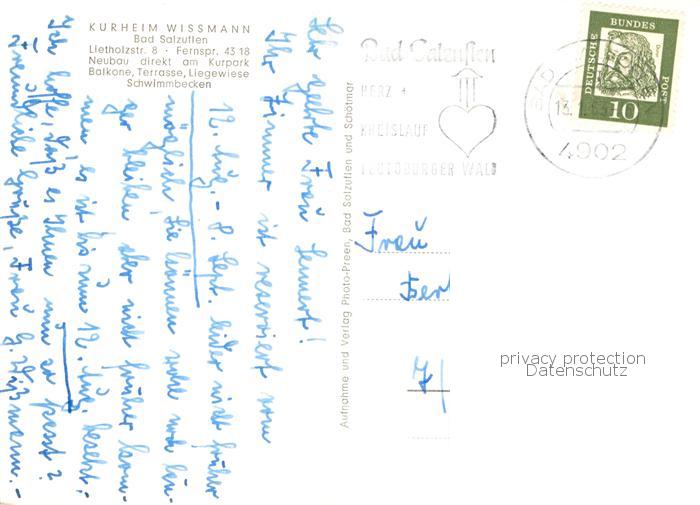 KURHEIM WISSMANN
Bad Salzuflen
Lietholzstr. 8 · Fernspr. 43 18
Neubau direkt am Kurpark
Balkone, Terrasse, Liegewiese
Schwimmbecken
Sehr geehrte Frau Lennert!
Ihr Zimmer ist reserviert vom
12. Aug. - 8. Sept. leider nicht früher
möglich, Sie können wohl noch län-
ger bleiben aber nicht früher kom-
men es ist bis zum 12. Aug. besetzt.
Ich hoffe, daß es Ihnen nun so passt?
Freundliche Grüße, Frau G. Wißmann.-
Aufnahme und Verlag Photo-Preen, Bad Salzuflen und Schötmar
Bad Salzuflen
HERZ +
KREISLAUF
TEUTOBURGER WALD
BAD
13.
4902
DEUTSCHE BUNDES POST
10
Frau
Berl
privacy protection
Datenschutz